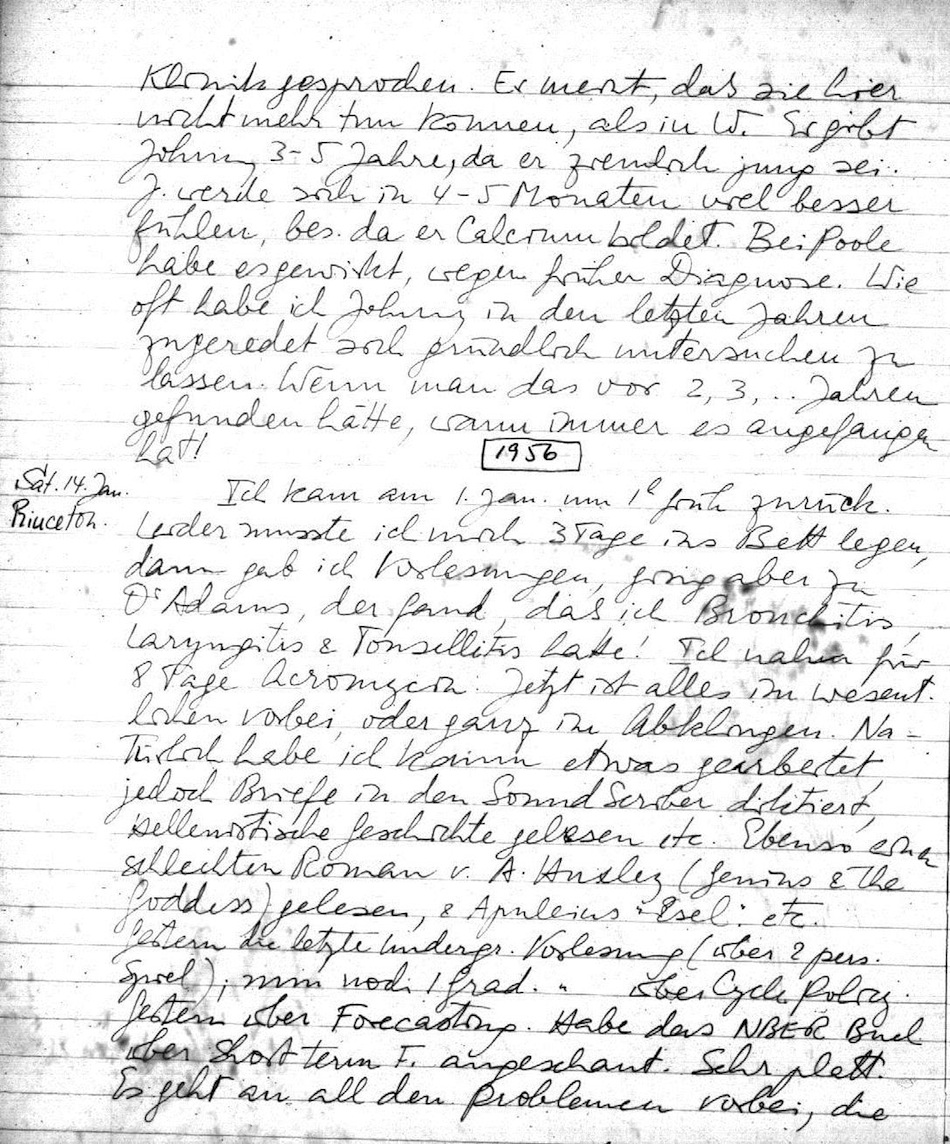 Klinik gesprochen. Er meint, dass sie hier
nicht mehr tun können, als in W. Er gibt
Johnny 3-5 Jahre, da er ziemlich jung sei.
J. werde sich in 4-5 Monaten viel besser
fühlen, bes. da er Calcium bildet. Bei Poole
habe es gewirkt, wegen früher Diagnose. Wie
oft habe ich Johnny in den letzten Jahren
zugeredet sich gründlich untersuchen zu
lassen. Wenn man das vor 2, 3, .. Jahren
gefunden hätte, wann immer es angefangen
hat!
1956
Sat. 14. Jan.
Princeton.
Ich kam am 1. Jan. um 1h früh zurück.
Leider musste ich mich 3 Tage ins Bett legen,
dann gab ich Vorlesungen, ging aber zu
Dr Adams, der fand, dass ich Bronchitis,
Laryngitis & Tonsillitis hatte! Ich nahm für
8 Tage Acromycin. Jetzt ist alles im wesent-
lichen vorbei, oder ganz im Abklingen. Na-
türlich habe ich kaum etwas gearbeitet,
jedoch Briefe in den SoundScriber diktiert,
Hellenistische Geschichte gelesen etc. Ebenso einen
schlechten Roman v. A. Huxley (Genius & the
Goddess) gelesen, & Apuleius "Esel" etc.
Gestern die letzte undergr. Vorlesung (über 2 pers.
Spiel), nun noch 1 grad. " über Cycle Policy.
Gestern über Forecasting. Habe das NBER Buch
über Short term F. angeschaut. Sehr platt.
Es geht an all den Problemen vorbei, die